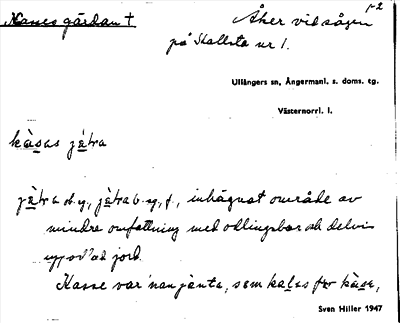 Kasesgärdan † Åker vid sågen 1-2
på Skallsta nr 1.
Ullångers sn, Ångermanl. s. doms. tg.
Västernorrl. l.
kàsas jétra
jètra ob. sg., jètra b. sg. f., inhägnat område av
mindre omfattning med odlingsbar och delvis
uppodlad jord.
Kasse var nan jänta, sem kales för kàse,
Sven Hiller 1947